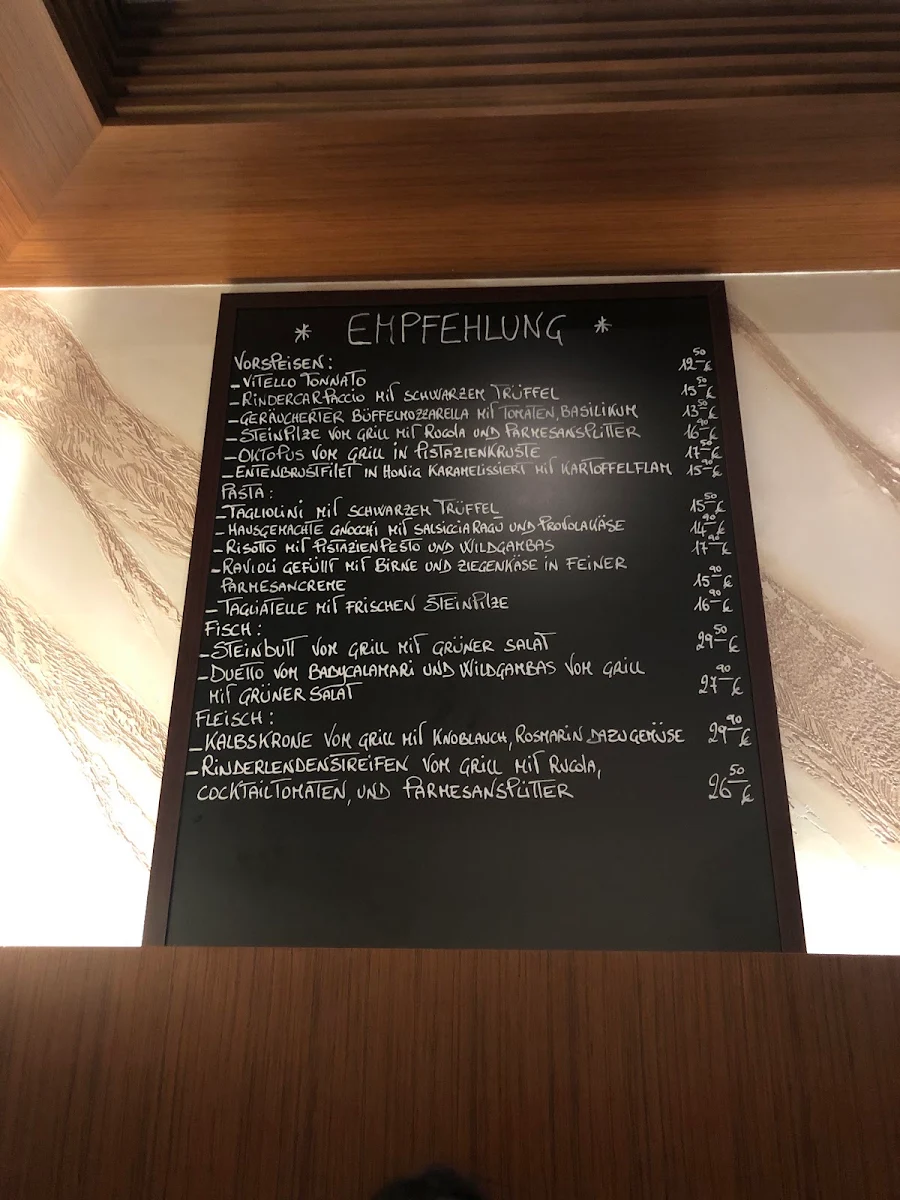 * EMPFEHLUNG *
VORSPEISEN:
- VITELLO TONNATO 12,50 €
- RINDERCARPACCIO MIT SCHWARZEM TRÜFFEL 15,50 €
- GERÄUCHERTER BÜFFELMOZZARELLA MIT TOMATEN, BASILIKUM 13,50 €
- STEINPILZE VOM GRILL MIT RUCOLA UND PARMESANSPLITTER 16,90 €
- OKTOPUS VOM GRILL IN PISTAZIENKRUSTE 17,50 €
- ENTENBRUSTFILET IN HONIG KARAMELISSIERT MIT KARTOFFELFLAM 15,90 €
PASTA:
- TAGLIOLINI MIT SCHWARZEM TRÜFFEL 15,50 €
- HAUSGEMACHTE GNOCCHI MIT SALSICCIA RAGÙ UND PROVOLAKÄSE 14,90 €
- RISOTTO MIT PISTAZIENPESTO UND WILDGAMBAS 17,90 €
- RAVIOLI GEFÜLLT MIT BIRNE UND ZIEGENKÄSE IN FEINER
PARMESANCREME 15,90 €
- TAGLIATELLE MIT FRISCHEN STEINPILZE 16,90 €
FISCH:
- STEINBUTT VOM GRILL MIT GRÜNER SALAT 29,50 €
- DUETTO VOM BABYCALAMARI UND WILDGAMBAS VOM GRILL
MIT GRÜNER SALAT 27,90 €
FLEISCH:
- KALBSKRONE VOM GRILL MIT KNOBLAUCH, ROSMARIN DAZU GEMÜSE 29,90 €
- RINDERLENDENSTREIFEN VOM GRILL MIT RUCOLA,
COCKTAILTOMATEN, UND PARMESANSPLITTER 26,50 €